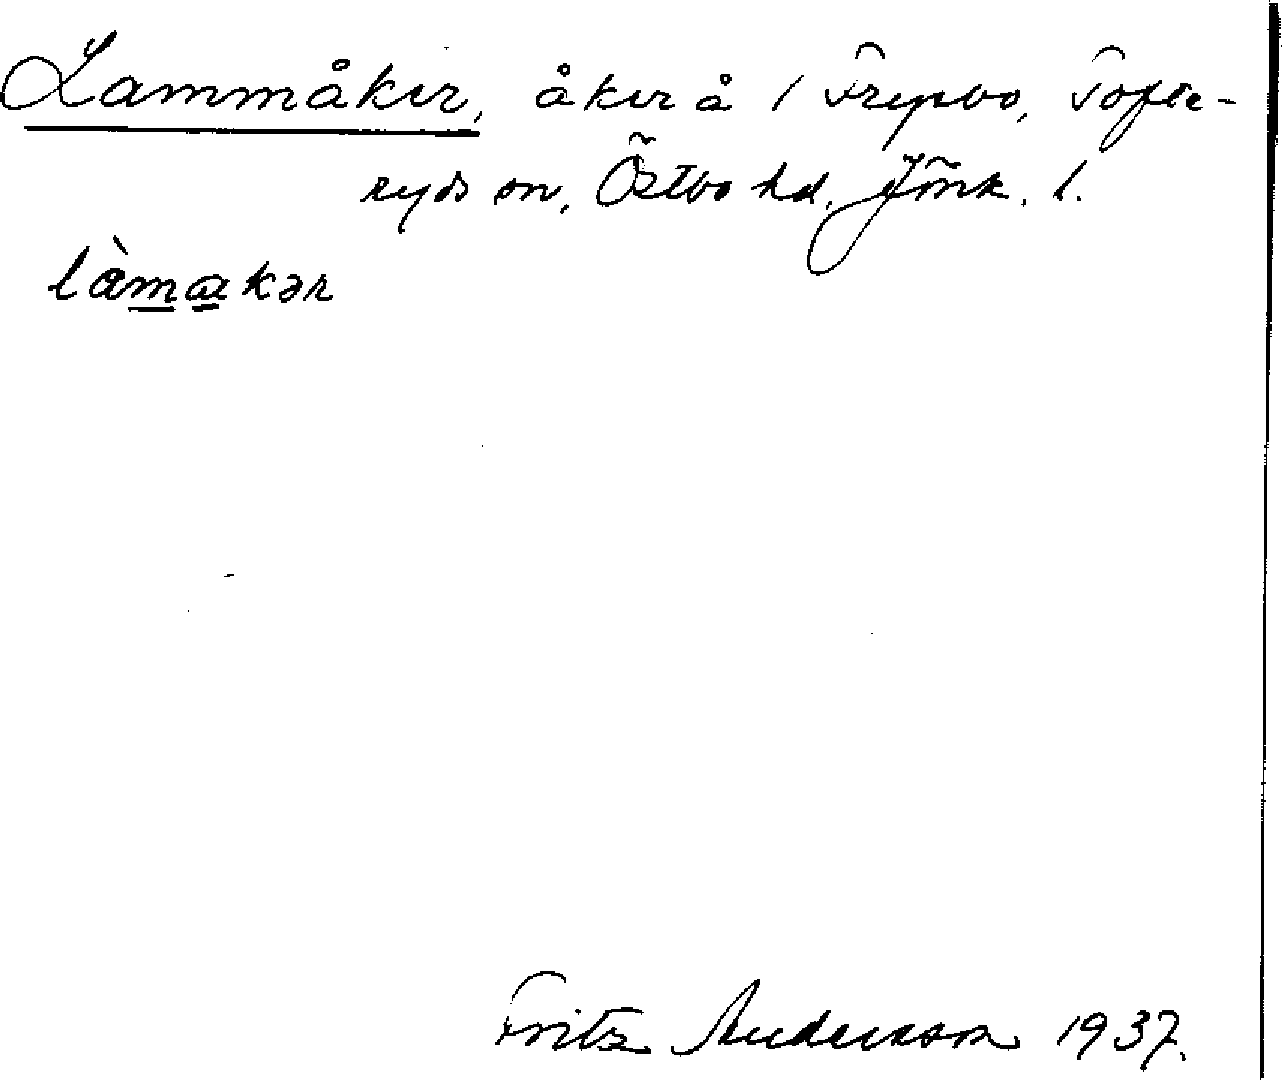 Lammåker, åker å 1 Trepbo, Tofte-
ryds sn, Östbo hd, Jönk. l.
làmakər
Fritz Anderson 1937.